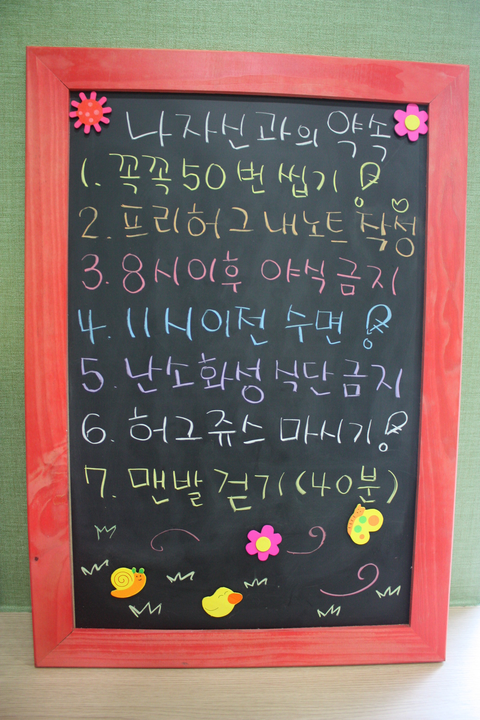 나 자신과의 약속
1. 꼭꼭 50번 씹기!
2. 프리허그 내노트 작성
3. 8시이후 야식금지
4. 11시이전 수면!
5. 난소화성 식단금지
6. 허그쥬스 마시기!
7. 맨발 걷기(40분)